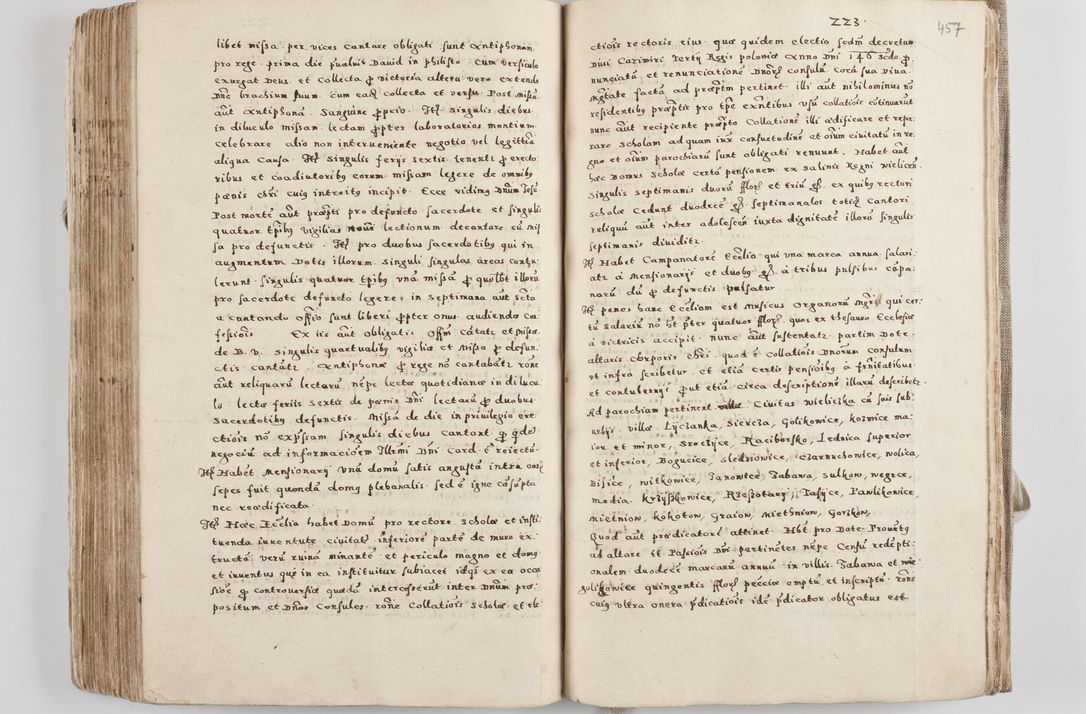 libet missa per vices cantare obligati sunt Antiphonam
pro rege prima die psalmus David in psalisto cum versiculo
exurgat Deus. et Collecta p victoria altera vero extende
Dne brachium suum. cum eadē collecta et versu Post missā
aūt Antiphona. Sanguine pprio. Itē singulis diebus
in diluculo missam lectam ppter laboratores montium
celebrare alio non interveniente negotio vel legittīa
aliqua causa. Itē singulis ferijs sextis tenenti p erecto:
ribus et coadiutoribus eorum missam legere de omnibus
poenis chri cuius introitus incipit. Ecce vidimus Dnum Jesu
Post mortē aūt pti pro defuncto sacerdote et singulis
quatuor tpibus vigilias noue lectionum decantare cū mis
sa pro defunctis. Itē pro duobus sacerdotibus qui in
augmentum Dotis illorum singuli singulas areas contu:
lerunt singulis quatuor tpibus vnā missā p quolibet illorū
pro sacerdote defuncto legere. in septimana aūt scta
a cantando offō sunt liberi ppter onus audiendae co:
fessiois Ex iis aūt obligatis Offm cātatz et missae
de B. v. singulis quartualibus vigiliae et missa p defun:
ctis cantātz. Antiphonae p rege nō cantabātz rōne
aūt reliquarū lectarū nēpe lectae quotidianae in dilucu
lo lectae feriis sextis de poenis Dni lectarū p duobus
sacerdotibus defunctis. Missā de die in privilegio ere:
ctiois nō expssam singulis diebus cantant p qde
negociū ad informacioēm Illrmi Dni Card. ē reiectū.
Itē Habēt Mensionarij vnā domū satis angustā intra
sepes fuit quondā domus plebanalis sed ē igne cosūpta
nec reaedificata.
Itē Haec Ecclia habet Domū pro rectore scholae et insti:
tuenda iuuentute civitatis inferiorē partē de muro ex:
tructā, verū ruinā minantē et periculo magno et domus
et iuuentus quae in ea instituitur subiacet idqz ex ea occa
sioē p controversia quadā intercesserūt inter Dnum prae:
positum et Dnos Consules rōne Collatiois scholae et ele
223.
457
ctiois rectoris eius. quae quidem electio scdm decretum
Divi Casimiri Tertij Regis poloniae Anno Dni 140 scdo p:
nunciatū, et renunciatione Dnorz consulū Corā sua Diva
mgtate factā ad praeptm pertinet. illi aūt nihilominus nō
residentibus praeptis pro tpe exntibus vsū collatiois cōtinuarūt
nunc aūt recipiente praepto Collationē illi aedificare et repa:
rare scholam ad quam iux consuetudinē et oium civitatū in re:
gno et oium parochiarū sunt obligati renuunt. Habet aūt
haec Domus scholae certā pensionem ex salinis Regni wielicen.
singulis septimanis duorū fflorz et triū gs. ex quibus rectori
scholae Cedunt duodecē gs. septimanales totisqz Cantori
reliquū aūt inter adolescēn iuxta dignitatē illorū singulis
septimanis dividitz.
Itē Habet Campanatorē Ecclia qui vna marca annua salari:
atz a Mensionarijs et duobus gs. a tribus pulsibus cāpa:
narū dū p defunctis pulsatur
Itē penes hanc Eccliam est musicus organorū mgri qui cer:
tū salariū nō ht pter quatuor fflorz quos ex thesauro Ecclesiae
a victricis accipit. nunc aūt sustentatz partim Dote
altaris Corporis chri. quod ē Collatiois Dnorum consulum
vt infra scribetur. et etiā certis pensioibus a frnitatibus
et contubernijs put etiā circa descriptionē illarū describetz.
Ad parochiam pertinent Civitas Wieliczka cū suis sub:
urbijs. villae. Lyczanka, Siercza, Golikowice, kozmice ma:
ior et minor, Sroczyce, Raciborsko, Lednica superior
et inferior, Bogucice, Sledziowice, Czarnochowice, wolica,
Bisice, witkowice, Janowice, Zabawa, Sulkow, wegrce,
media. krzyszkowice, Rzeszotary, Tasyce, Pawlikowice,
mietniow, kokotow, Graiow, Miethniow, Gorzkow,
Quod aūt praedicatorē attinet. Hbt pro Dote Prouētus
ad altare tt Passiois Dni pertinētes nēpe Censū redēpti:
onalem duodecē marcarū annuū in villis Zabawa et
golikowice quingentis fflorz pecciae emptū et inscriptū. rōne
cuius vltra onera pdicatiois idē pdicator obligatus est